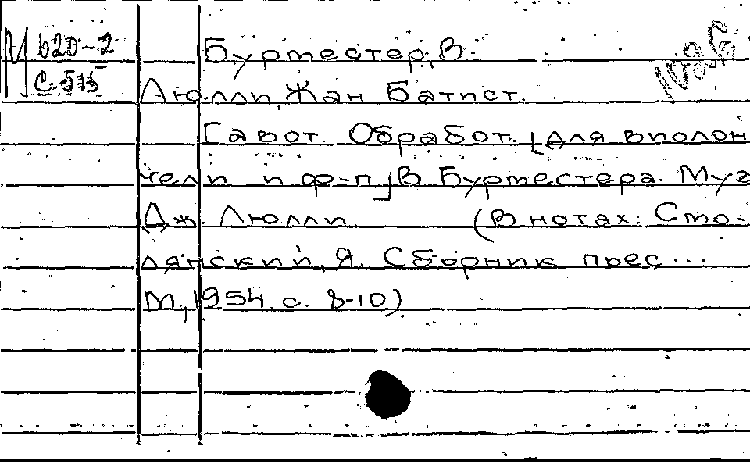 М 620-2
С 515
Буртестер, В.
Люлли, Жан Батист.
Гавот. Обработ. [для виолон
чели и ф-п] В. Буртестера. Муз
Дж. Люлли. (В нотах: Сто-
лянский, Я. Сборник пьес...
М, 1954, с. 8-10)